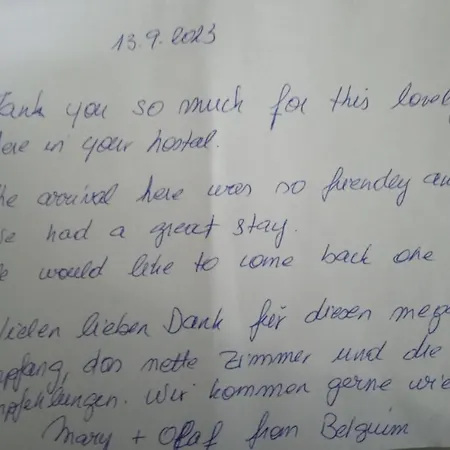 13.9.2023
Thank you so much for this lovely
here in your hostal.
The arrival here was so friendey an
We had a great stay.
We would like to come back one
Vielen lieben Dank für diesen mega
mpfang, das nette Zimmer und die
mpfehlungen. Wir kommen gerne wie
Mary + Olaf from Belguim